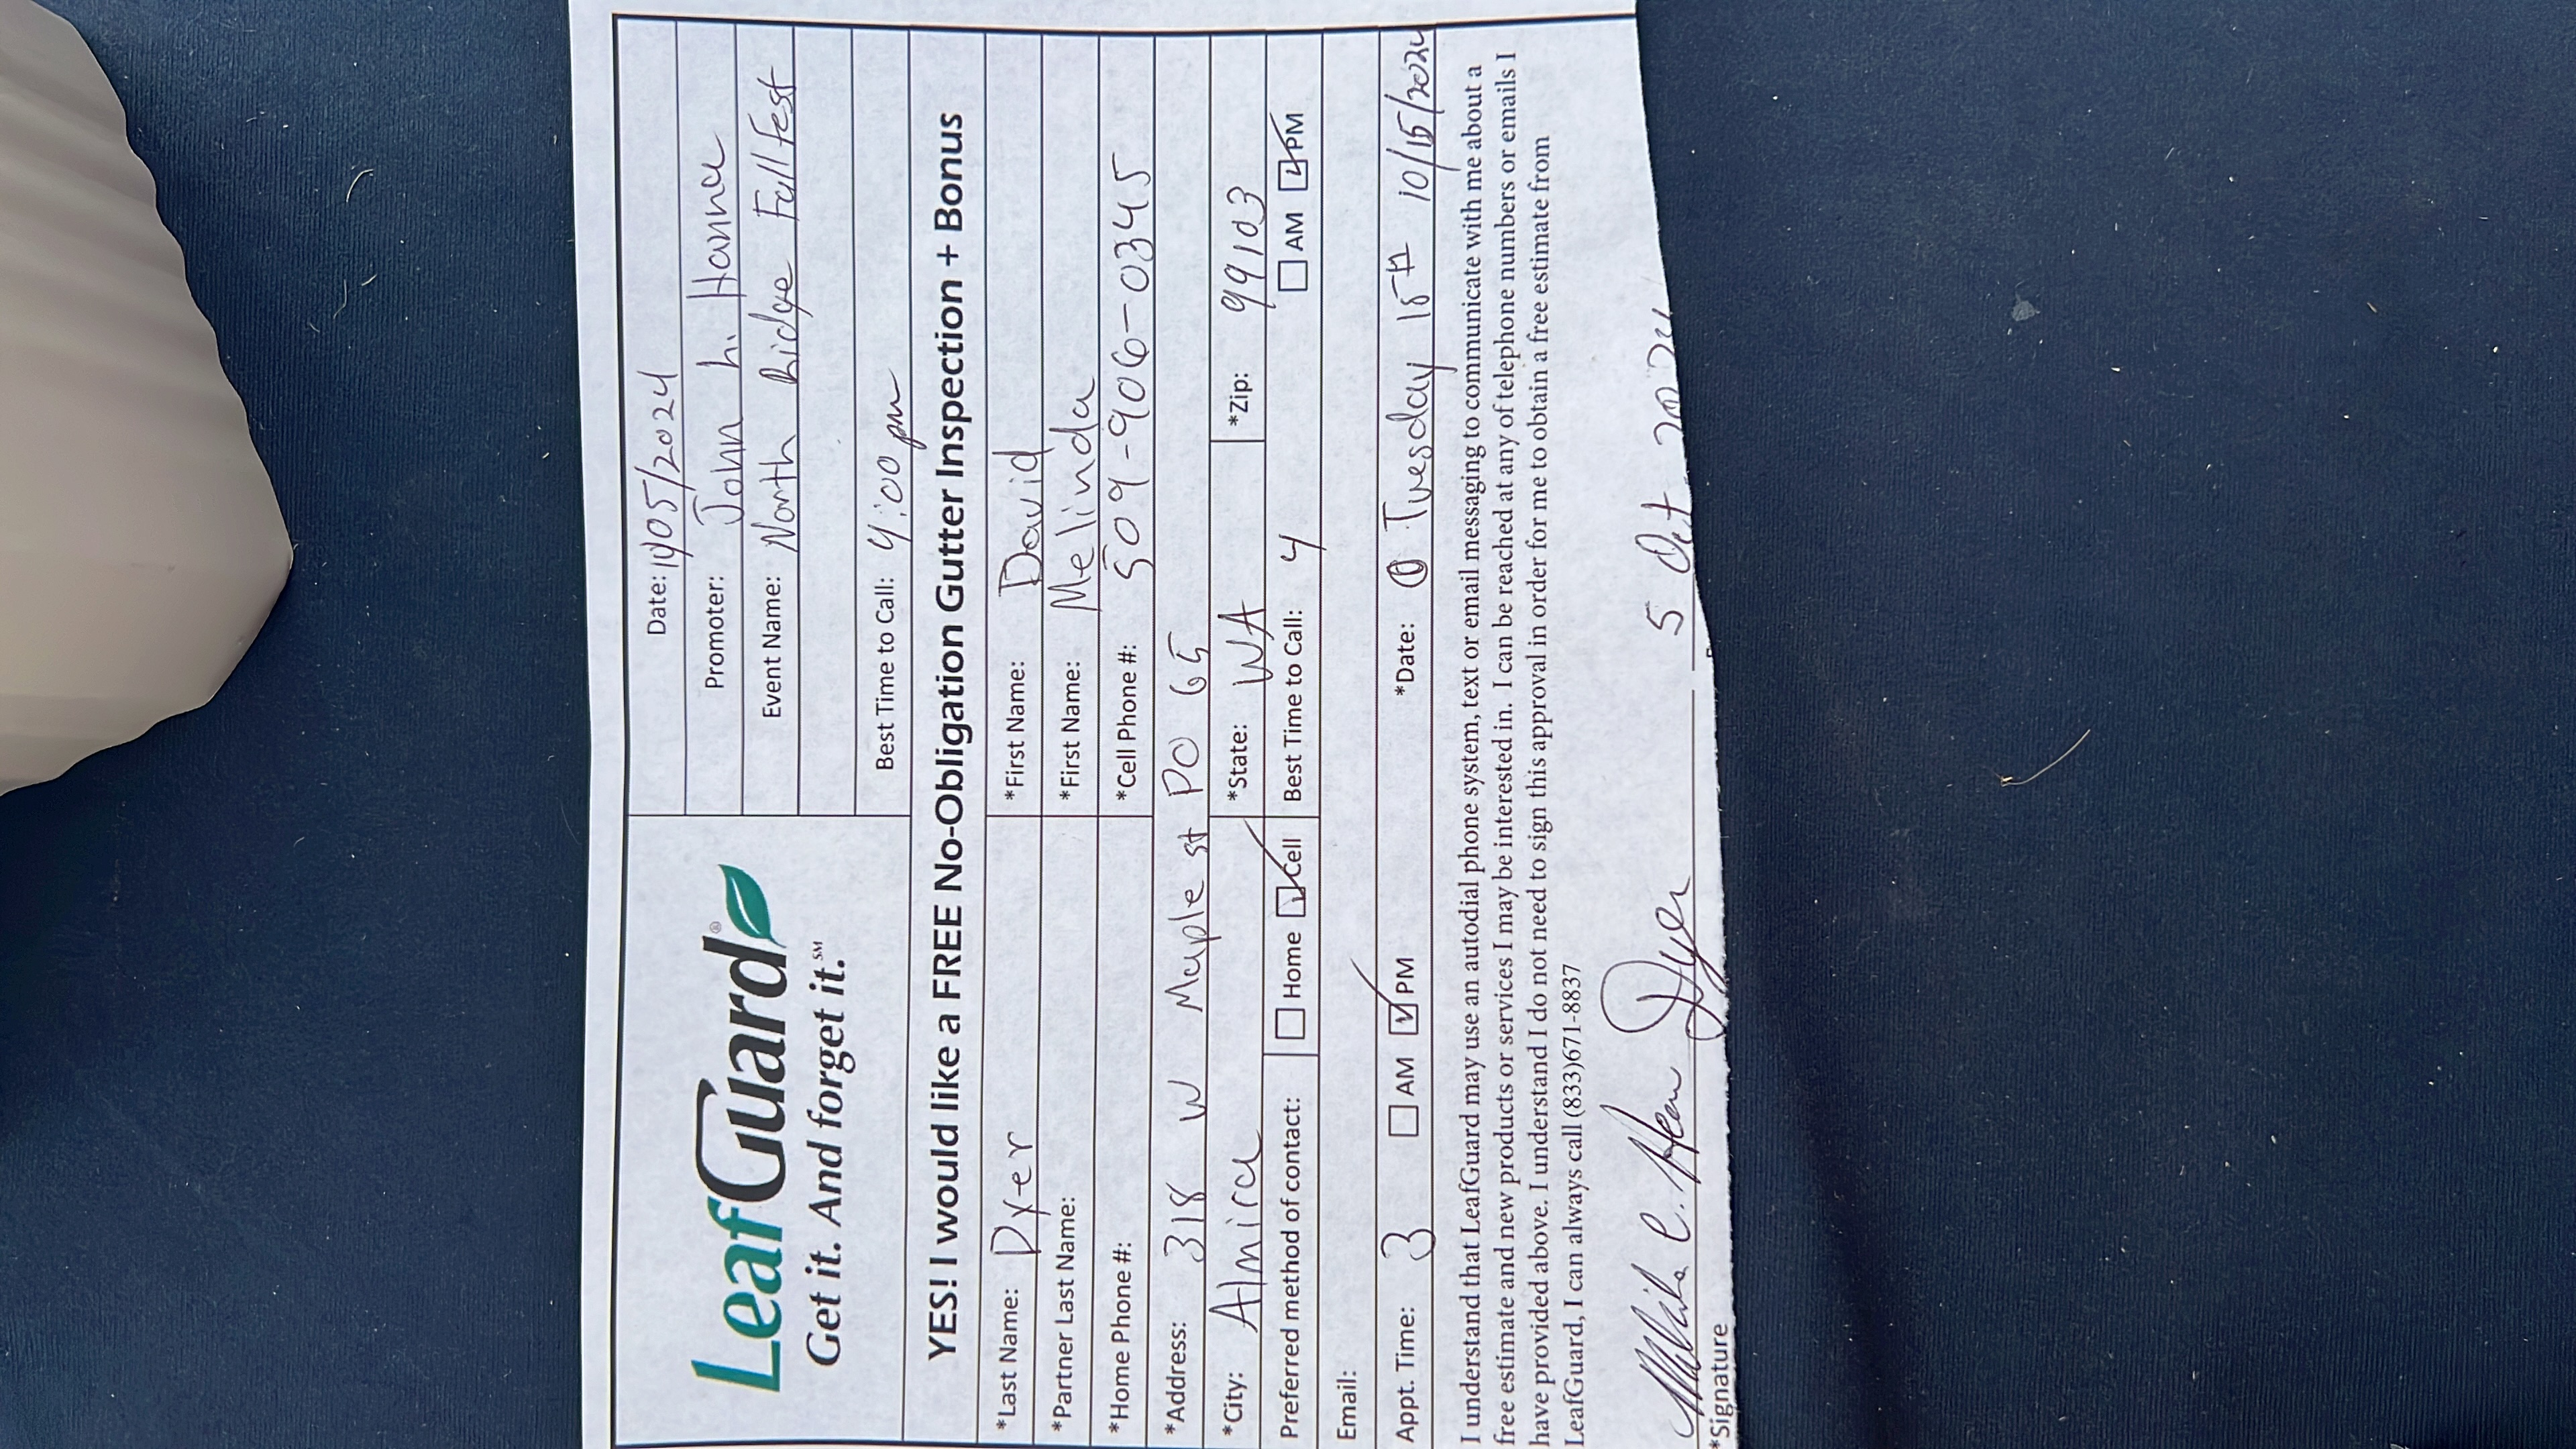 Date: 10/05/2024
Promoter: John h. Hanna
LeafGuard®
Get it. And forget it.℠
Event Name: North Ridge Fall fest
Best Time to Call: 4:00 pm
YES! I would like a FREE No-Obligation Gutter Inspection + Bonus
*Last Name: Dyer *First Name: David
*Partner Last Name: *First Name: Melinda
*Home Phone #: *Cell Phone #: 509-906-0345
*Address: 318 W Maple st PO 65
*City: Almira *State: WA *Zip: 99103
Preferred method of contact: ☐ Home ☑ Cell Best Time to Call: 4 ☐ AM ☑ PM
Email:
Appt. Time: 3 ☐ AM ☑ PM *Date: Tuesday 15th 10/15/2024
I understand that LeafGuard may use an autodial phone system, text or email messaging to communicate with me about a
free estimate and new products or services I may be interested in. I can be reached at any of telephone numbers or emails I
have provided above. I understand I do not need to sign this approval in order for me to obtain a free estimate from
LeafGuard, I can always call (833)671-8837
Dyer 5 Oct 2024
*Signature